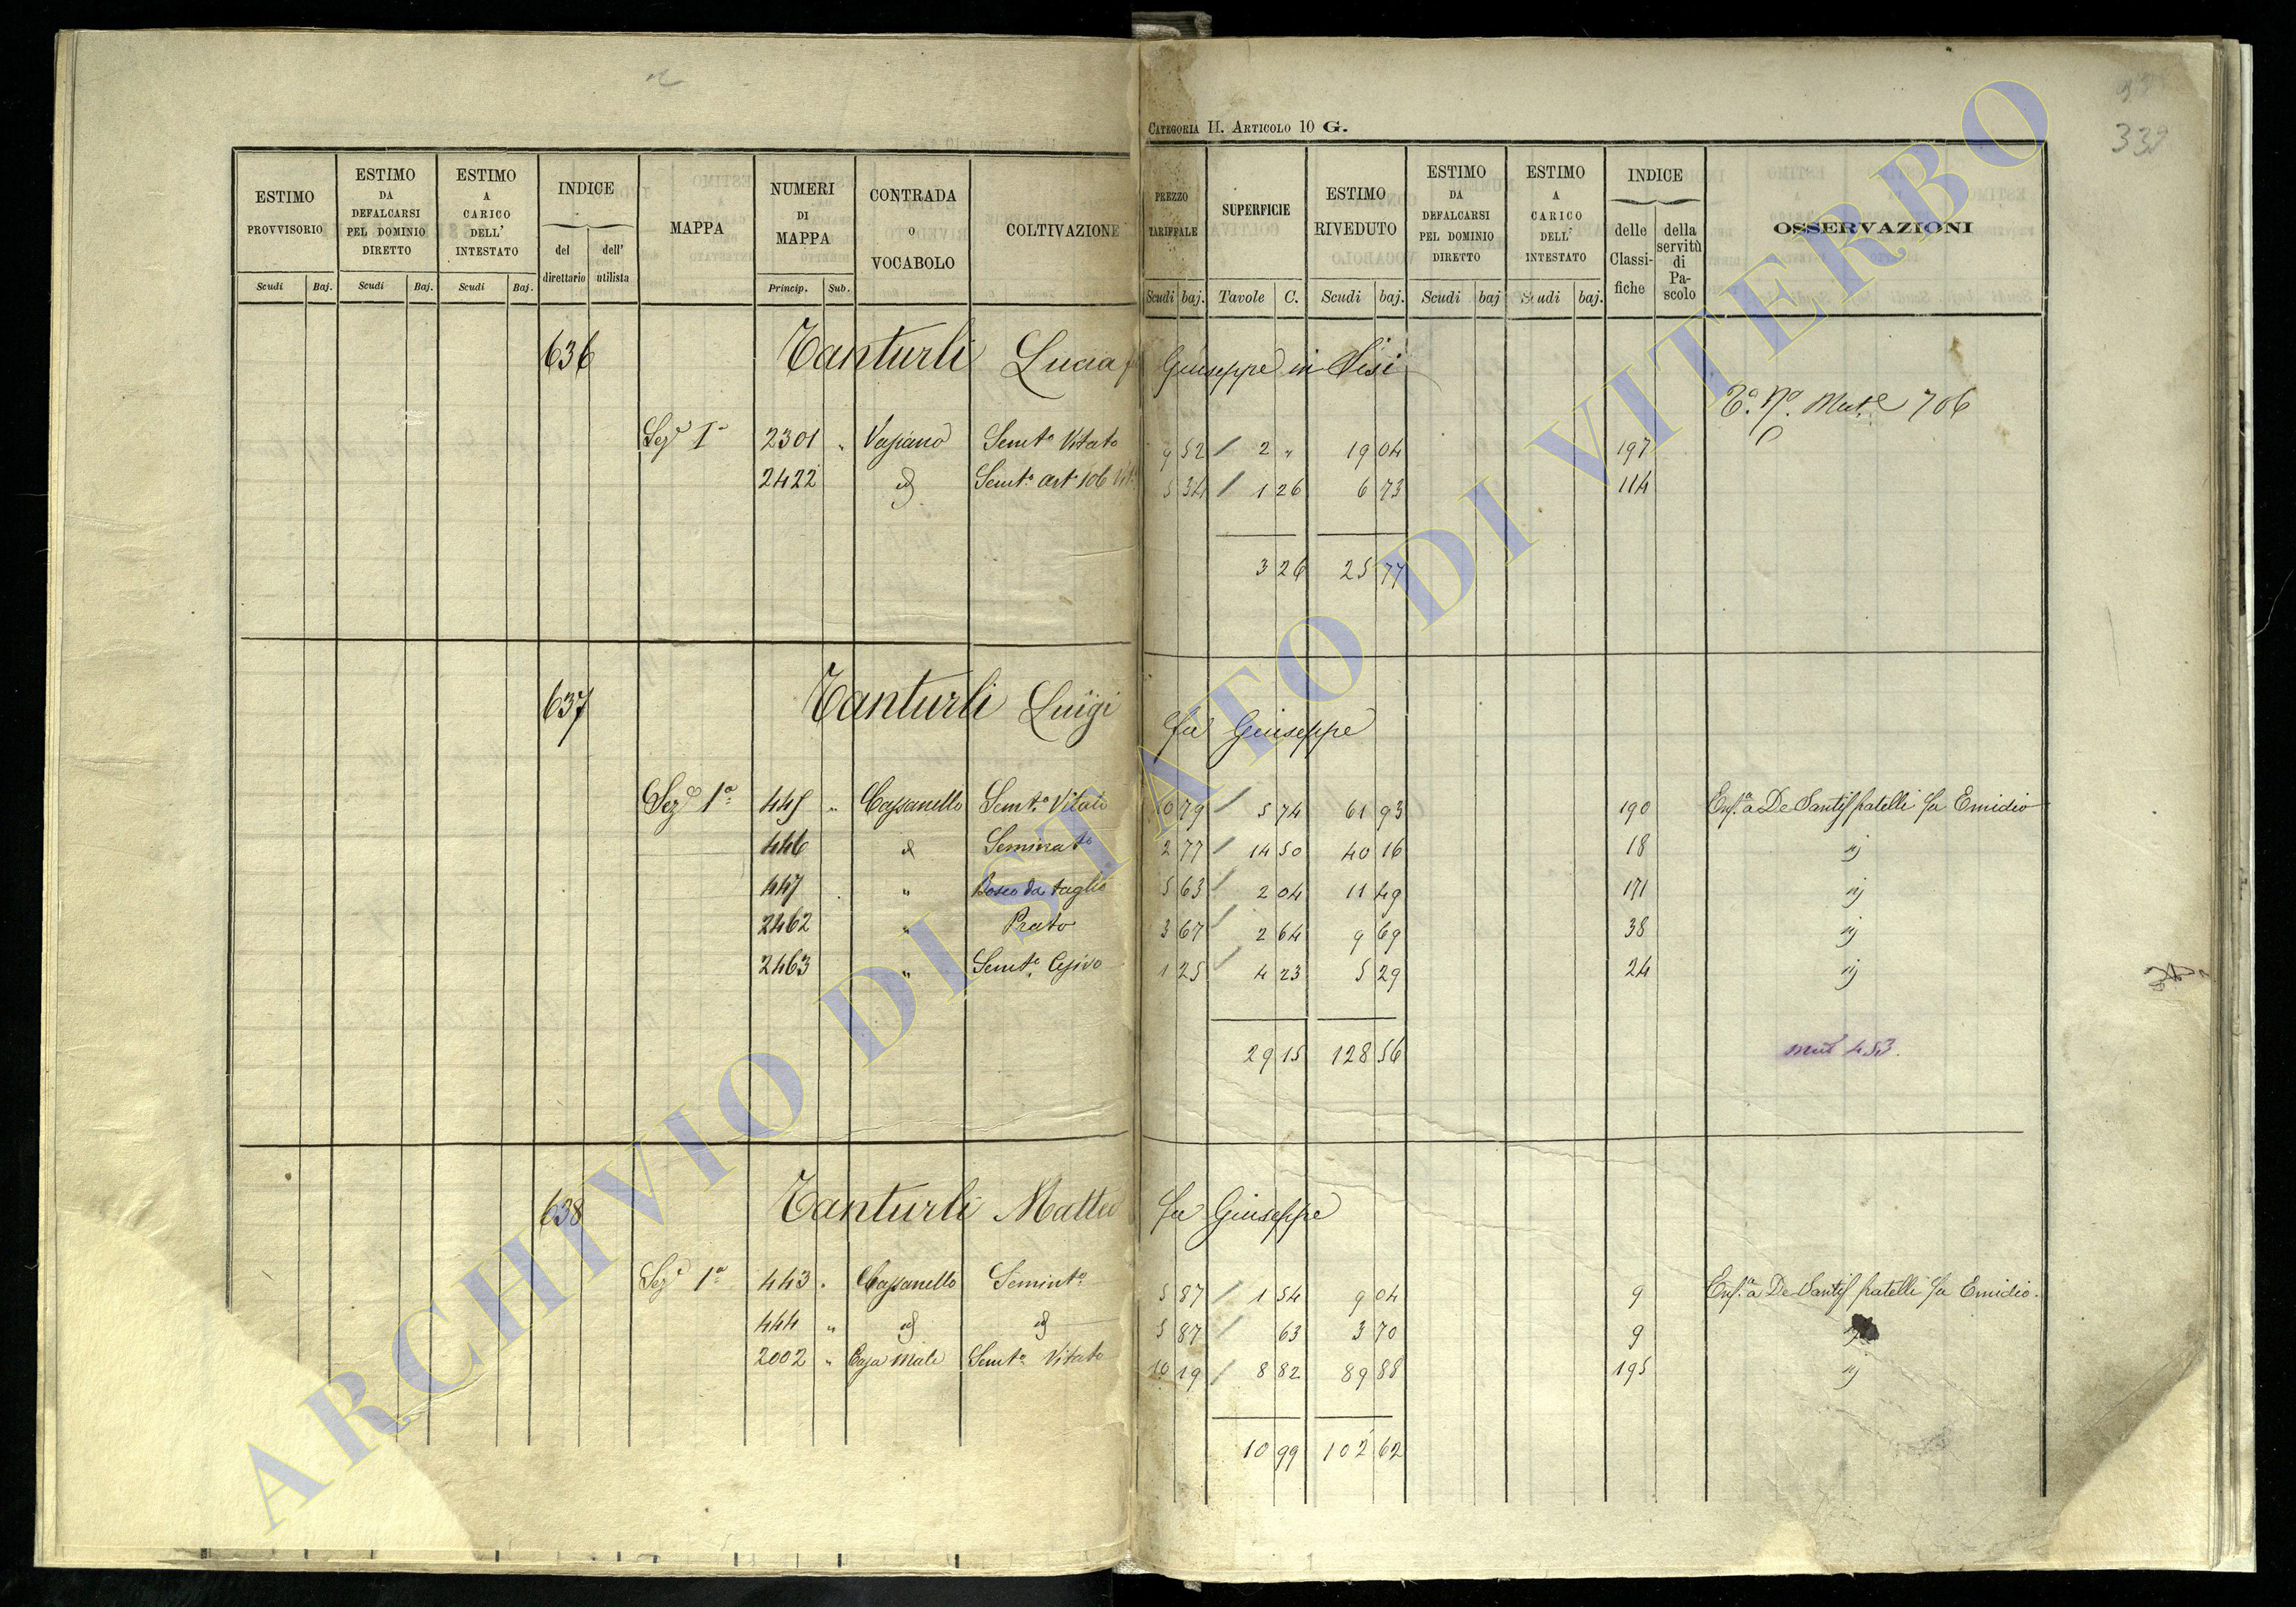 CATEGORIA II. ARTICOLO 10 G.
338
ESTIMO PROVVISORIO | ESTIMO DA DEFALCARSI PEL DOMINIO DIRETTO | ESTIMO A CARICO DELL' INTESTATO | INDICE del direttario dell' utilista | MAPPA | NUMERI DI MAPPA | CONTRADA O VOCABOLO | COLTIVAZIONE | PREZZO TARIFFALE | SUPERFICIE | ESTIMO RIVEDUTO | ESTIMO DA DEFALCARSI PEL DOMINIO DIRETTO | ESTIMO A CARICO DELL' INTESTATO | INDICE delle Classifiche della servitù di Pascolo | OSSERVAZIONI
Scudi Baj. Scudi Baj. Scudi Baj. Princip. Sub. Scudi baj. Tavole C. Scudi baj. Scudi baj Scudi baj.
636 Tanturli Lucia Giuseppe in Sisi
Ta. Na. Mut.e 706
Seze I 2301 " Vasiano Semto Vitato 9 52 / 2 " 19 04 197
2422 id Semto art. 106 Vit. 5 34 / 1 26 6 73 114
3 26 25 77
637 Tanturli Luigi fu Giuseppe
Seze 1a 445 " Cassanello Semto Vitato 10 79 / 5 74 61 93 190 Enfa a De Santis fratelli fu Emidio
446 id Seminato 2 77 / 14 50 40 16 18 id
447 " Bosco da taglio 5 63 / 2 04 11 49 171 id
2462 " Prato 3 67 / 2 64 9 69 38 id
2463 " Semto Cesivo 1 25 / 4 23 5 29 24 id
29 15 128 56
Mut 453.
638 Tanturli Matteo fu Giuseppe
Seze 1a 443 " Cassanello Seminto 5 87 / 1 54 9 04 9 Enfa a De Santis fratelli fu Emidio.
444 " id id 5 87 / 63 3 70 9 id
2002 " Casa Male Semto Vitato 10 19 / 8 82 89 88 195 id
10 99 102 62
ARCHIVIO DI STATO DI VITERBO